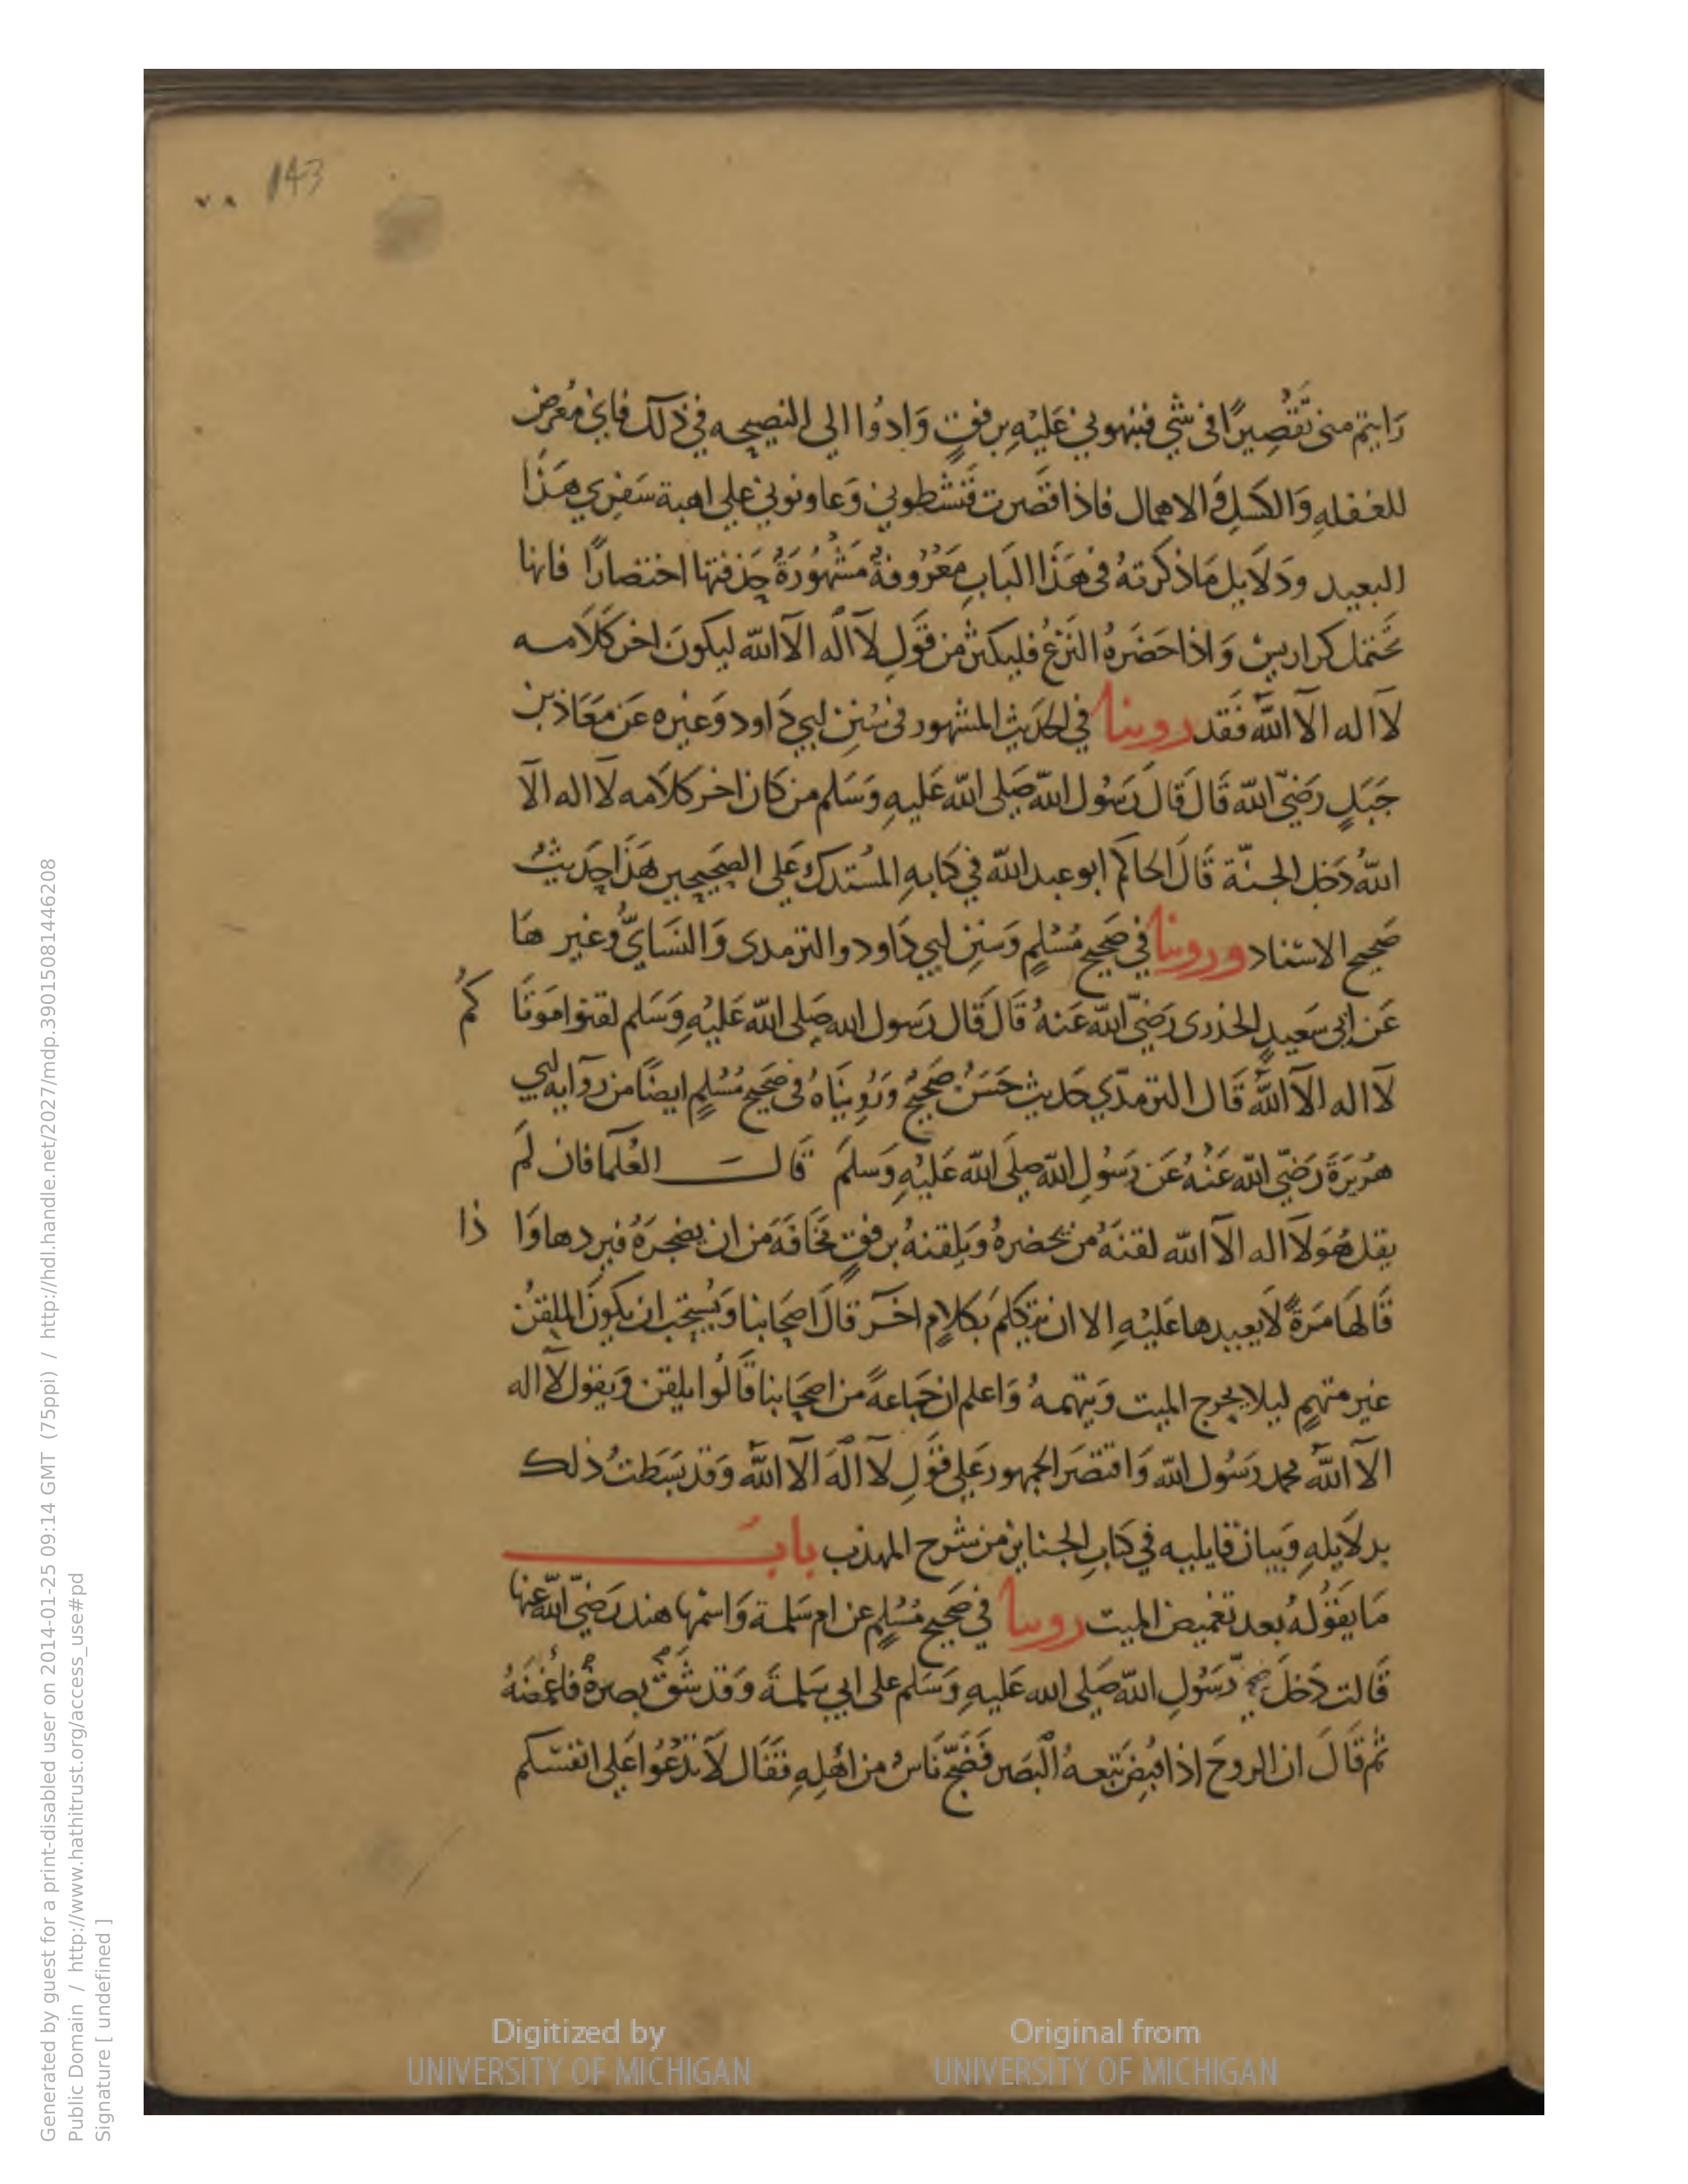 143
٧٨
رَايتم منى تَقْصِيرًا فى شي فنبهوني عَليْهِ برفقٍ وَادوُا الي النصيحه في ذلك فاني مُعرض
للغفله وَالكسَلِ وَالاهمال فاذا قصَّرت فَنشطوني وَعاونوني علي اهبة سَفري هَذا
البعيد ودَلايل مَا ذكرته فى هَذا البَابِ مَعْرُوفةٌ مَشْهُورَةٌ حذفتها اختصارًا فانها
تحَتمل كراريسْ وَاذا حَضَرهُ النَزْعُ فليكثر من قَولِ لآ اله الآ الله ليكونَ اخر كَلَامه
لآ اله الآ اللهُ فَقد روينا في الحَديث المشهور فى سُنن ابي دَاود وَغيره عَن مَعَاذ بن
جَبَلٍ رَضيَ الله قَال قَالَ رَسُول الله صَلى الله عَليهِ وَسَلم من كَان اخر كلَامه لآ اله الآ
اللهُ دَخل الجنّة قَالَ الحاكم ابو عبد الله في كتابهِ المُستدرك عَلي الصَحيحين هَذا حَديثُ
صَحيح الاسْناد وروينا في صَحيح مُسْلمٍ وَسنن ابي دَاود والترمدى وَالنسَايُّ وَغير هَا
عَن ابى سَعيدٍ الخدرى رَضيَ الله عَنهُ قَالَ قَال رَسول الله صَلى الله عَليْهِ وَسَلم لقنوا مَوتَا كمُ
لآ اله الآ اللهُ قَال الترمدّي حَديث حَسَنُ صَحيحُ وَرُوينَاهُ فى صَحيح مُسْلمٍ ايضًا من روآية ابي
هرُيرَةَ رَضيَ الله عَنْهُ عَن رَسُولِ الله صلَى الله عَليْهِ وَسلمَ قَالت العُلمآ فان لَم
يقل هُوَ لآ اله الآ الله لقنهُ مَن يحضرهُ وَيلقنهُ برفقٍ مَخَافَةَ من ان يضجرَهُ فيردها وَا ذا
قَالهَا مَرةً لَا يعيدها عَليْهِ الا ان يتكلمَ بكلامٍ اخَر قالَ اصحَابنا وَيُستحب ان يكونَ الملقنُ
غير متهمٍ ليلا يحرج الميت وَيتهمهُ وَاعلم ان جَماعةً من اصحَابنا قَالوُا يلقن وَيقول لآ اله
الآ اللهُ محمد رَسُول الله وَاقتصَر الجمهور عَلي قَولِ لآ الهَ الآ اللهُ وَقد بَسَطتُ ذلك
بدلَايلهِ وَبيان قايليه في كتابِ الجنايز من شرح المهذب بابُ
مَا يقَوُلهُ بعد تغميض الميت روينا في صَحيح مُسْلمٍ عن ام سَلمة وَاسْمها هند رَضيَ الله عنها
قَالت دَخلَ رَسُولِ الله صَلى الله عَليهِ وَسَلم على ابي سَلمةَ وَقد شَقَّ بصرهُ فاغمَضَهُ
ثم قَالَ ان الروحَ اذا قبضَ تبعهُ الْبَصَر فَضَجَّ نَاسُ من اهْلهِ فقَال لَا تدْعُوا عَلي انفسكم
Digitized by
UNIVERSITY OF MICHIGAN
Original from
UNIVERSITY OF MICHIGAN
Generated by guest for a print-disabled user on 2014-01-25 09:14 GMT (75ppi) / http://hdl.handle.net/2027/mdp.39015081446208
Public Domain / http://www.hathitrust.org/access_use#pd
Signature [ undefined ]